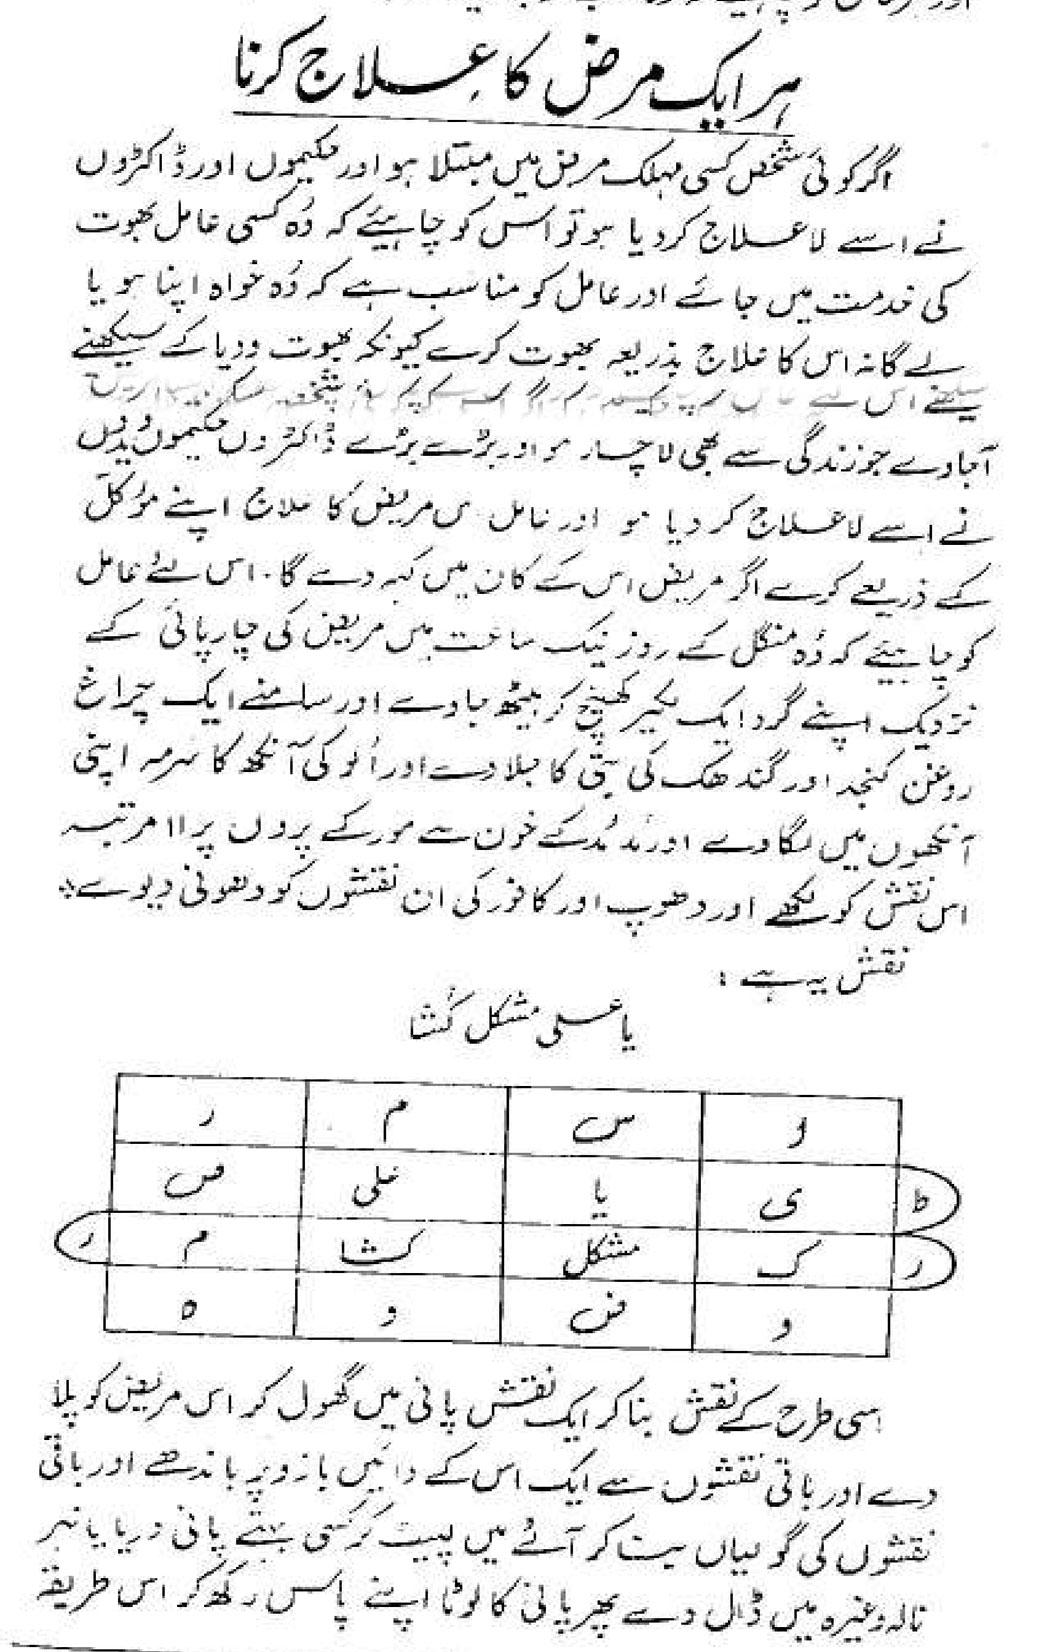 ہر ایک مرض کا علاج کرنا
اگر کوئی شخص کسی مہلک مرض میں مبتلا ہو اور حکیموں اور ڈاکٹروں
نے اسے لاعلاج کر دیا ہو تو اس کو چاہیئے کہ وُہ کسی عامل بھوت
کی خدمت میں جائے اور عامل کو مناسب ہے کہ وُہ خواہ اپنا ہو یا
بے گانہ اس کا علاج بذریعہ بھوت کرے کیونکہ بھوت ودیا کے سیکھنے
آجاوے جو زندگی سے بھی لاچار ہو اور بڑے بڑے ڈاکٹروں حکیموں ویدوں
نے اسے لاعلاج کر دیا ہو اور عامل اس مریض کا علاج اپنے مؤکل
کے ذریعے کرے اگر مریض اس کے کان میں کہہ دے گا۔ اس لئے عامل
کو چاہیئے کہ وُہ منگل کے روز نیک ساعت میں مریض کی چارپائی کے
نزدیک اپنے گرد ایک لکیر کھینچ کر بیٹھ جاوے اور سامنے ایک چراغ
روغن کنجد اور گندھک کی بتی کا جلاوے اور اُلو کی آنکھ کا سرمہ اپنی
آنکھوں میں لگاوے اور ہُدہُد کے خون سے مور کے پروں پر ۱۱ مرتبہ
اس نقش کو لکھے اور دھوپ اور کافور کی ان نقشوں کو دھونی دیوے
نقش یہ ہے :
یا علی مشکل کُشا
و س م ر
ط ی یا علی ص
ر ک مشکل کشا م ر
و ض و ہ
اسی طرح کے نقش بنا کر ایک نقش پانی میں گھول کر اس مریض کو پلا
دے اور باقی نقشوں سے ایک اس کے دائیں بازو پر باندھے اور باقی
نقشوں کی گولیاں بنا کر آٹے میں لپیٹ کر کسی بہتے پانی دریا یا نہر
نالہ وغیرہ میں ڈال دے پھر پانی کا لوٹا اپنے پاس رکھ کر اس طریقہ